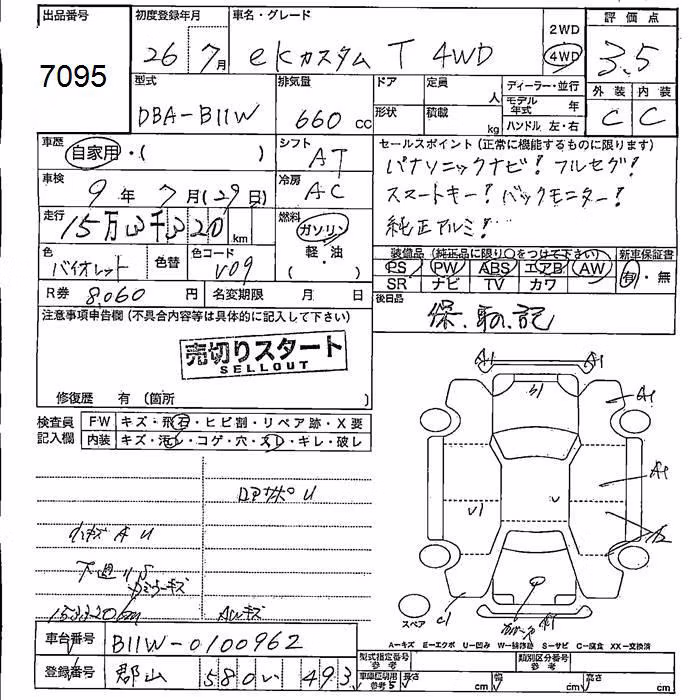 出品番号 初度登録年月 車名・グレード 評価点
7095 26年7月 eKカスタム T 4WD 2WD 4WD 3.5
型式 排気量 ドア 定員 人 ディーラー・並行 外装 内装
DBA-B11W 660cc 形状 積載 kg モデル年式 年 C C
ハンドル 左・右
車歴 自家用・( ) シフト AT セールスポイント(正常に機能するものに限ります)
パナソニックナビ! フルセグ!
車検 9年7月(29日) 冷房 AC スマートキー! バックモニター!
走行 15万3千320km 燃料 ガソリン 軽・油 ・( ) 純正アルミ!
色 バイオレット 色替 色コード V09 装備品(純正品に限り○をつけて下さい) 新車保証書
PS PW ABS エアB AW 有・無
SR ナビ TV カワ
R券 8.060円 名変期限 月 日 後日品
保.取.記
注意事項申告欄(不具合内容等は具体的に記入して下さい)
売切りスタート
SELLOUT
修復歴 有(箇所 )
検査員記入欄 FW キズ・飛石・ヒビ割・リペア跡・X要
内装 キズ・汚レ・コゲ・穴・スレ・キレ・破レ
A1 A1
U1 A1
ロアサポU A1
小キズAU U1 U A2
下廻りS
153320km AWキズ
C1 A1
スペア
A-キズ E-エクボ U-凹み W-補修跡 S-サビ C-腐食 XX-交換済
車台番号 B11W-0100962
型式指定番号 参考 類別区分番号 参考
登録番号 郡山 580 い 493
車庫証明用 参考 長さ cm 幅 cm 高さ cm